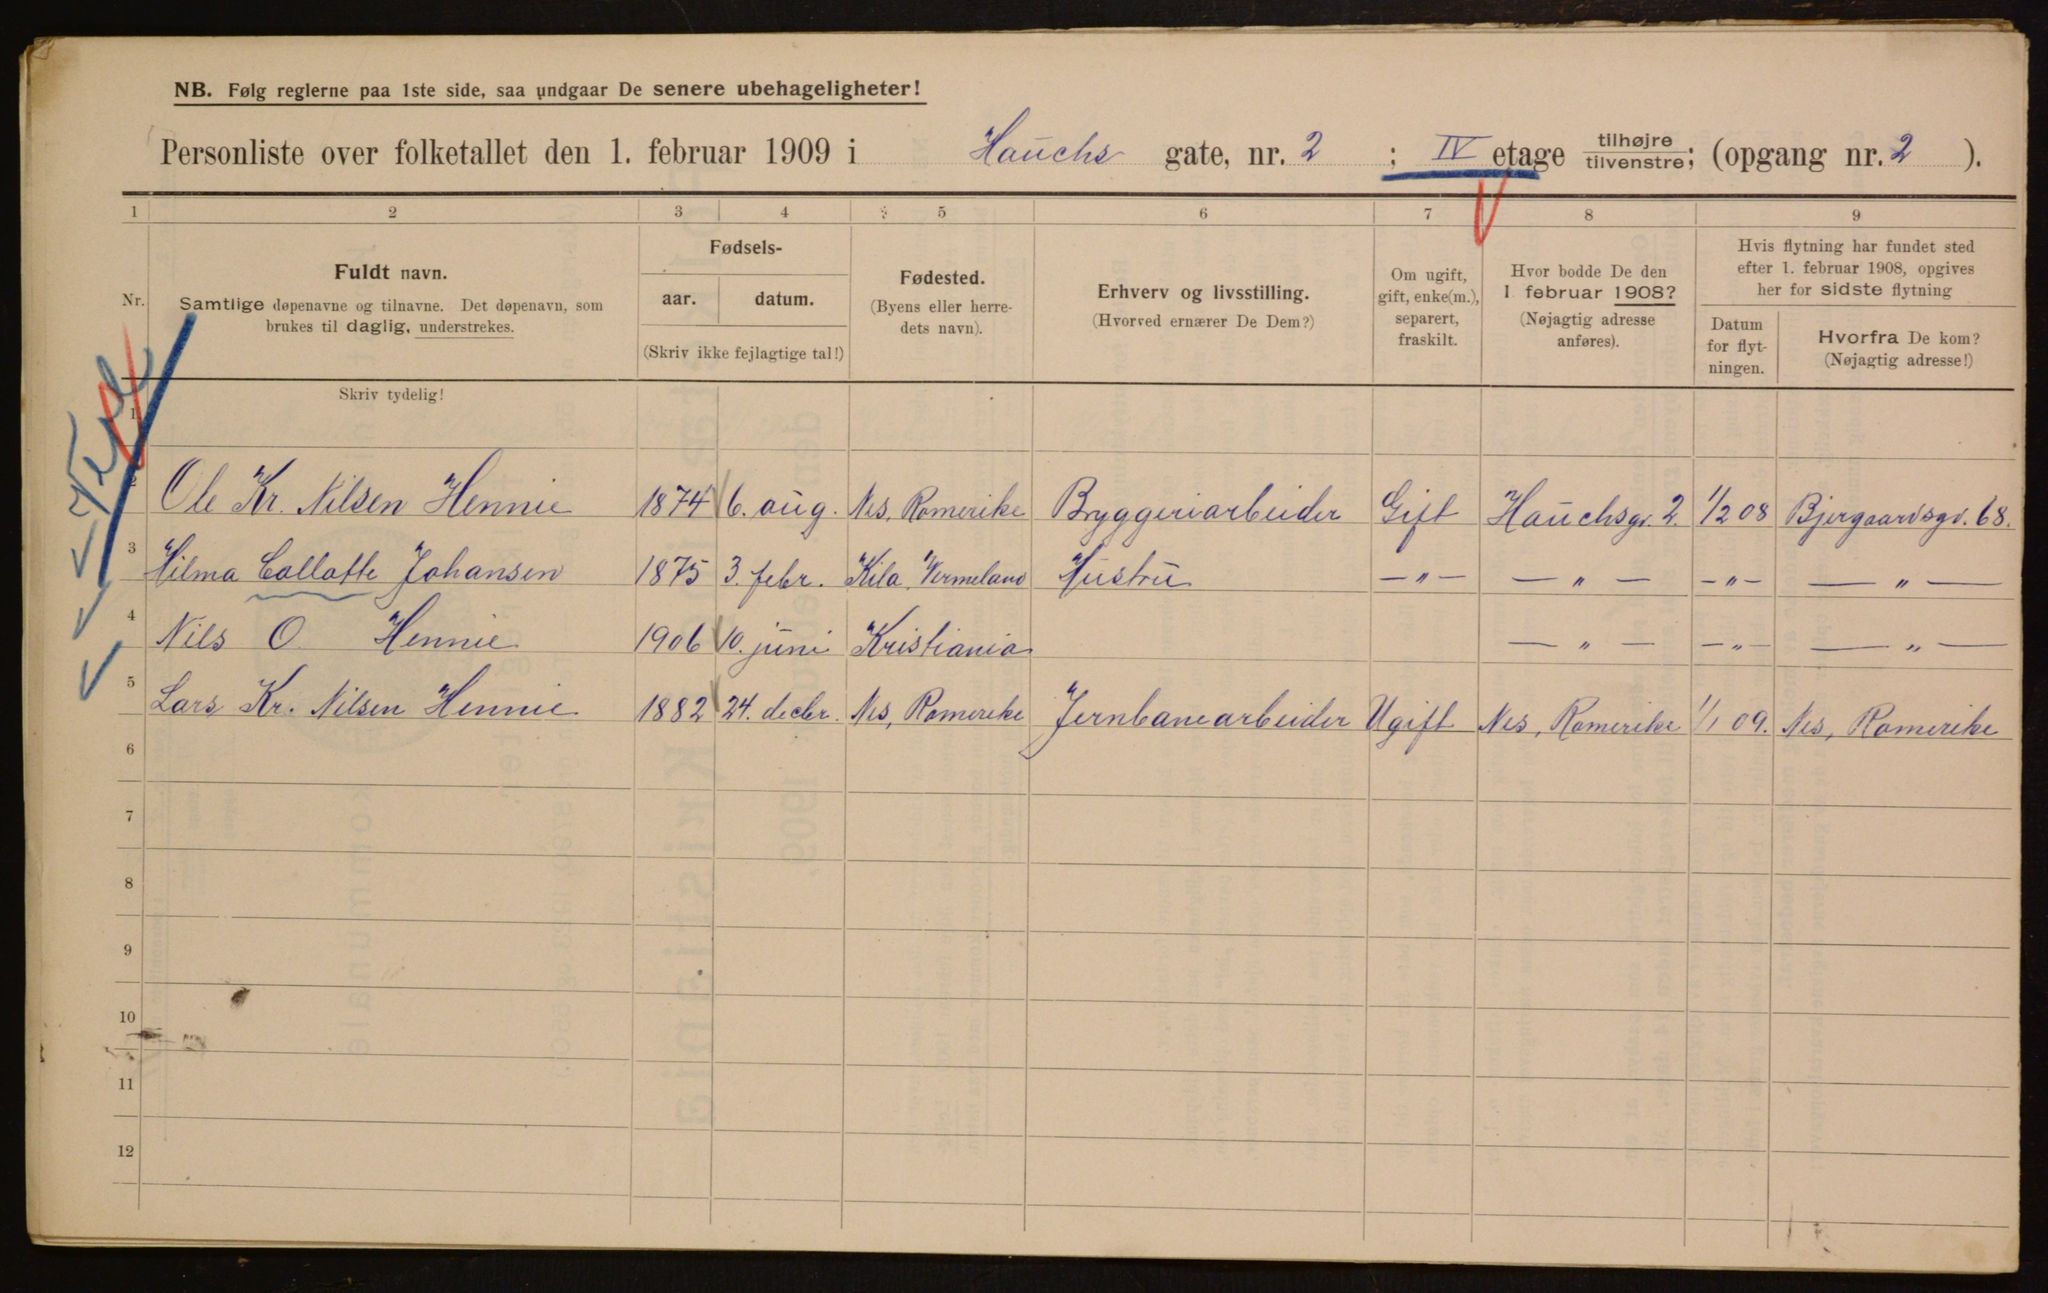 NB. Følg reglerne paa 1ste side, saa undgaar De senere ubehageligheter!
Personliste over folketallet den 1. februar 1909 i Hauchs gate, nr. 2 ; IV etage tilhøjre tilvenstre; (opgang nr. 2 ).
1 2 3 4 5 6 7 8 9
Nr.
Fuldt navn.
Samtlige døpenavne og tilnavne. Det døpenavn, som
brukes til daglig, understrekes.
Skriv tydelig!
Fødsels-
aar. datum.
(Skriv ikke fejlagtige tal!)
Fødested.
(Byens eller herre-
dets navn).
Erhverv og livsstilling.
(Hvorved ernærer De Dem?)
Om ugift,
gift, enke(m.),
separert,
fraskilt.
Hvor bodde De den
1 februar 1908?
(Nøjagtig adresse
anføres).
Hvis flytning har fundet sted
efter 1. februar 1908, opgives
her for sidste flytning
Datum
for flyt-
ningen.
Hvorfra De kom?
(Nøjagtig adresse!)
1
2 Ole Kr. Nilsen Hennie 1874 6. aug. Nes, Romerike Bryggeriarbeider Gift Hauchsgt. 2. 1/2 08 Bjergaardsgt. 68.
3 Hilma Collotte Johansen 1875 3. febr. Kila, Vermeland Hustru — " — — " — — " — — " —
4 Nils O. Hennie 1906 10. juni Kristiania — " — — " — — " —
5 Lars Kr. Nilsen Hennie 1882 24. decbr. Nes, Romerike Jernbanearbeider Ugift Nes, Romerike 1/1 09. Nes, Romerike
6
7
8
9
10
11
12